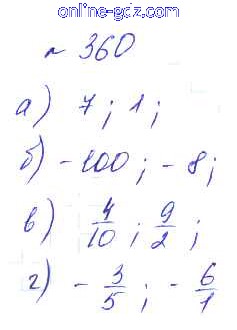 online-gdz.com
№ 360
а) 7; 1;
б) -100; -8;
в) 4/10; 9/2;
г) -3/5; -6/1